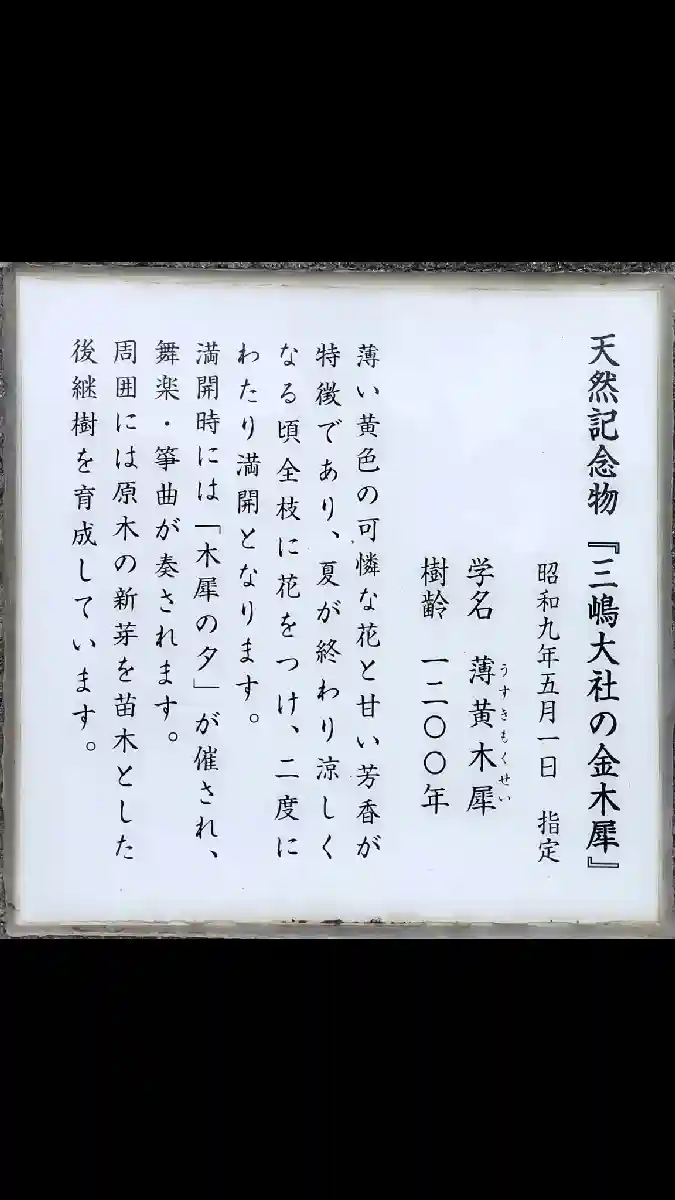 天然記念物『三嶋大社の金木犀』
昭和九年五月一日　指定
学名　薄黄木犀
うすきもくせい
樹齢　一二〇〇年
薄い黄色の可憐な花と甘い芳香が
特徴であり、夏が終わり涼しく
なる頃全枝に花をつけ、二度に
わたり満開となります。
満開時には「木犀の夕」が催され、
舞楽・箏曲が奏されます。
周囲には原木の新芽を苗木とした
後継樹を育成しています。